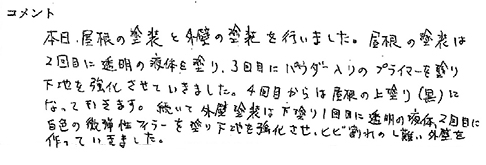 コメント
本日、屋根の塗装と外壁の塗装を行いました。屋根の塗装は
2回目に透明の液体を塗り、3回目にパウダー入りのプライマーを塗り
下地を強化させていきました。4回目からは屋根の上塗り(黒)に
なって行きます。続いて外壁塗装は下塗り1回目に透明の液体、2回目に
白色の微弾性フィラーを塗り下地を強化させ、ヒビ割れのし難い外壁を
作っていきました。